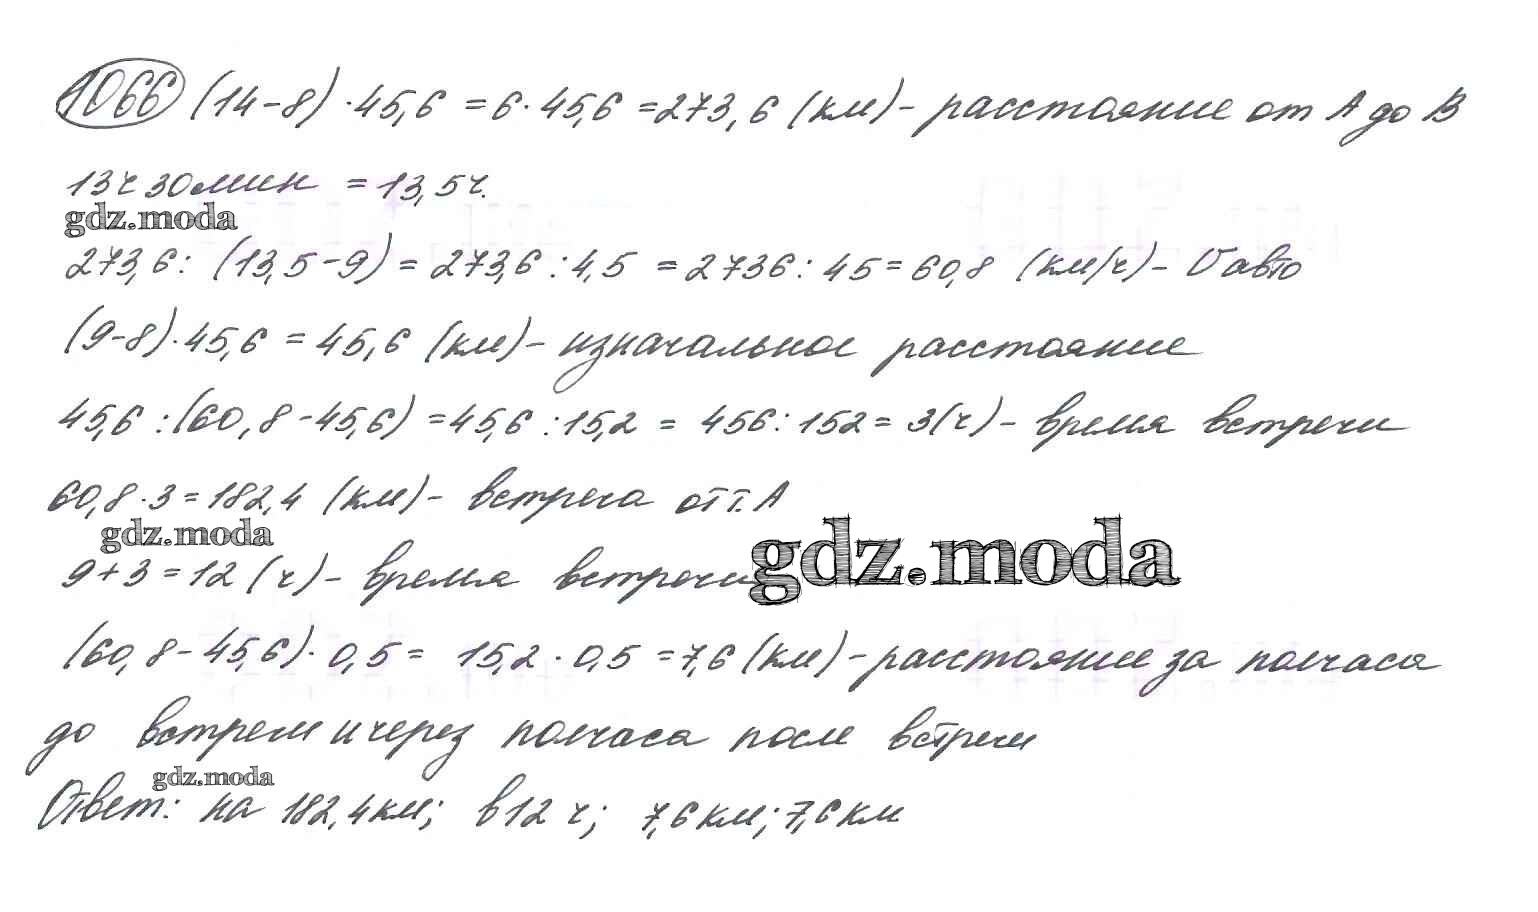 1066 (14-8)·45,6 = 6·45,6 = 273,6 (км) - расстояние от А до В
13ч 30мин = 13,5ч.
gdz.moda
273,6 : (13,5-9) = 273,6 : 4,5 = 2736 : 45 = 60,8 (км/ч) - V авто
(9-8)·45,6 = 45,6 (км) - изначальное расстояние
45,6 : (60,8-45,6) = 45,6 : 15,2 = 456 : 152 = 3(ч) - время встречи
60,8·3 = 182,4 (км) - встреча от т. А
gdz.moda
gdz.moda
9+3 = 12 (ч) - время встречи
(60,8-45,6)·0,5 = 15,2·0,5 = 7,6 (км) - расстояние за полчаса
до встречи и через полчаса после встречи
gdz.moda
Ответ: на 182,4км; в 12 ч; 7,6км; 7,6км